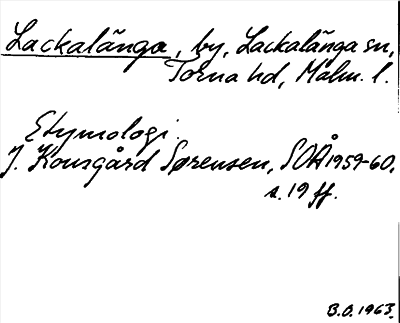 Lackalänga, by, Lackalänga sn,
Torna hd, Malm. l.
Etymologi.
J. Kousgård Sørensen, SOÅ 1959-60,
s. 19 ff.
B.O. 1963.